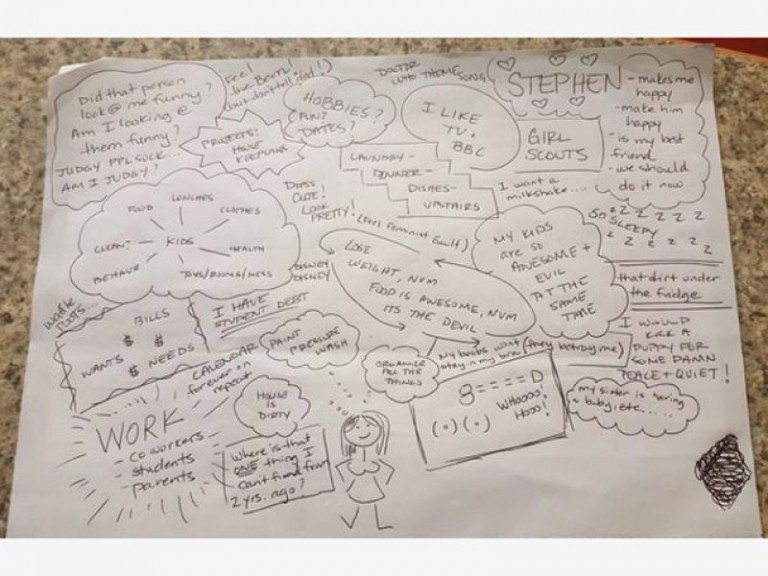 Did that person
look @ me funny?
Am I looking @
them funny?
JUDGY PPL SUCK...
AM I JUDGY?
Feel
the Bern!
(but don't tell dad!)
PROJECTS:
HOUSE
KEEPING
HOBBIES?
FUN?
DATES?
DOCTOR
WHO THEME SONG
I LIKE
TV.
BBC
STEPHEN
- makes me
happy
- make him
happy
- is my best
friend
- we should
do it now...
GIRL
SCOUTS
LAUNDRY-
DINNER-
DISHES-
UPSTAIRS
I want a
milkshake....
DRESS
CUTE!
LOOK
PRETTY!
(Feel Feminist Guilt)
SO SLEEPY
z z z z z z
z z z z z z
FOOD
LUNCHES
CLOTHES
CLEAN?
KIDS
HEALTH
BEHAVIOR
TOYS/ROOMS/MESS
DISNEY
DISNEY
LOSE
WEIGHT, NUM
FOOD IS AWESOME, NUM
ITS THE DEVIL
MY KIDS
are so
AWESOME +
EVIL
AT THE
SAME
TIME
that dirt under
the fridge
I WOULD
KICK A
PUPPY FOR
SOME DAMN
PEACE + QUIET!
BILLS
$ $
WANTS $ NEEDS
I HAVE
STUDENT DEBT
CALENDAR
forever on
repeat
PAINT
PRESSURE
WASH
ORGANIZE
ALL THE
THINGS
My boobs won't
stay in my bra (they betray me)
8====D
(.)(.)
WHOOOO!
HOOO!
my sister is having
a baby, etc.....
WORK
- coworkers
- students
- parents
HOUSE
IS
DIRTY
Where is that
ONE thing I
can't find from
2 yrs. ago?